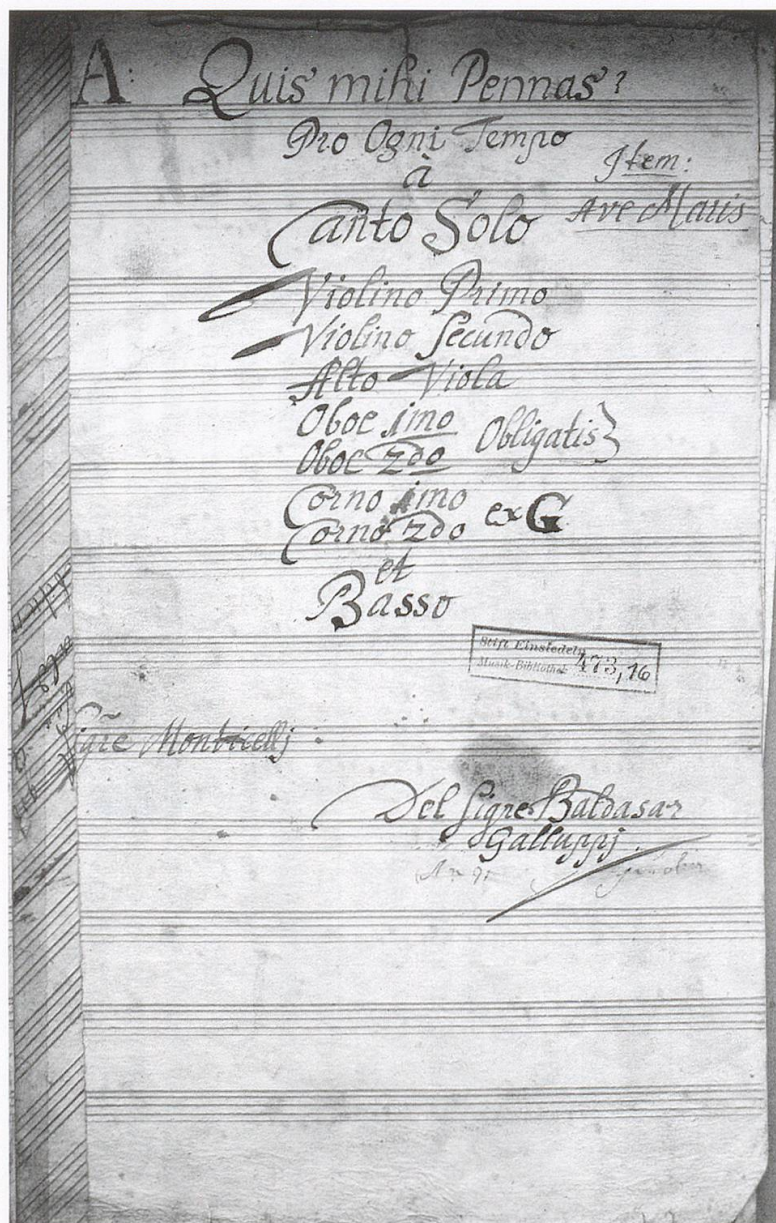 A: Quis mihi Pennas?
Pro Ogni Tempo
Item:
à
Ave Maris
Canto Solo
Violino Primo
Violino Secundo
Alto Viola
Oboe imo
Oboe 2do Obligatis}
Corno imo
Corno 2do ex G
et
Basso
Stift Einsiedeln
Musik-Bibliothek 473,16
Sigre Monticellj
Del Sigre Baldasar
Galluppj.